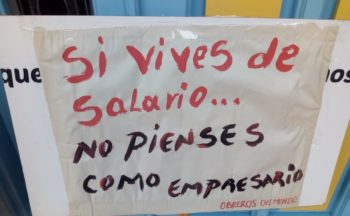 Si vives de
Salario...
que
nos
NO PIENSES
COMO EMPRESARIO
OBREROS DEL MUNDO